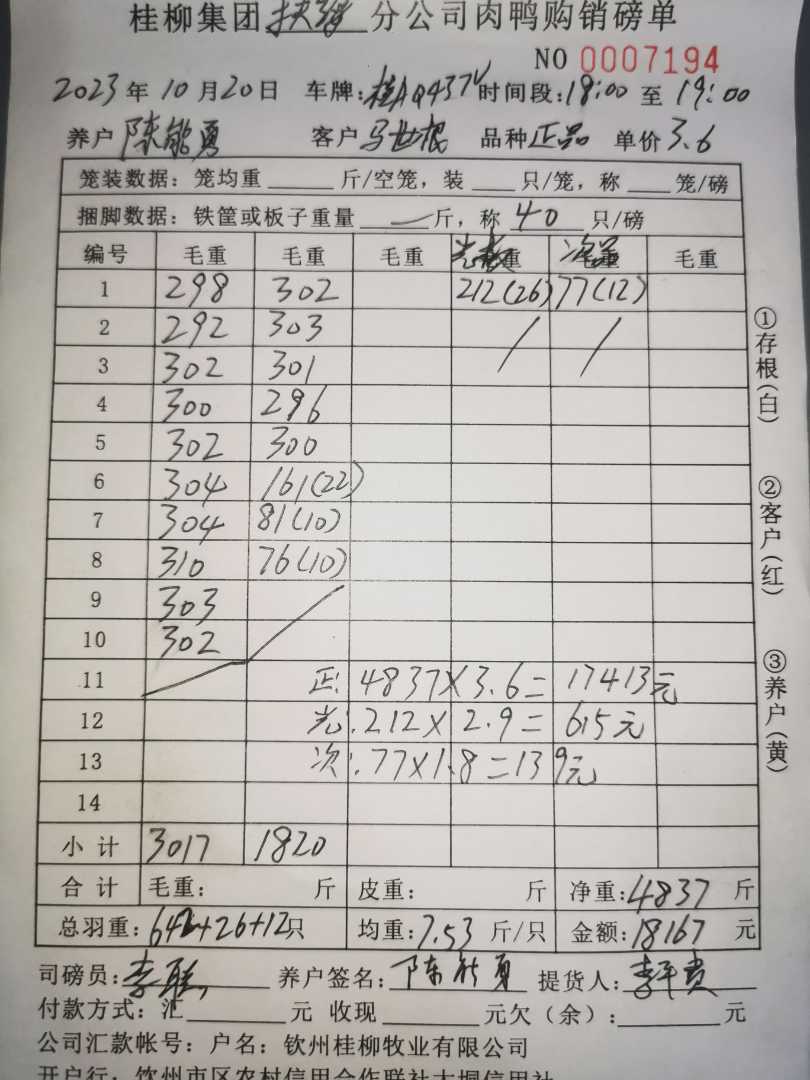 桂柳集团扶绥分公司肉鸭购销磅单
NO 0007194
2023年10月20日 车牌:桂AQ437V 时间段:18:00至19:00
养户 陈能勇 客户 马世根 品种 正品 单价 3.6
笼装数据:笼均重 斤/空笼,装 只/笼,称 笼/磅
捆脚数据:铁筐或板子重量 — 斤,称 40 只/磅
编号 毛重 毛重 毛重 毛重
1 298 302 212(26) 77(12)
2 292 303 / /
3 302 301
4 300 296
5 302 300
6 304 161(22)
7 304 81(10)
8 310 76(10)
9 303
10 302
11 正: 4837×3.6= 17413元
12 光: 212×2.9= 615元
13 次: 77×1.8=139元
14
小计 3017 1820
合计 毛重: 斤 皮重: 斤 净重:4837 斤
总羽重:642+26+12只 均重:7.53 斤/只 金额:18167 元
司磅员: 养户签名:陈能勇 提货人:李平贵
付款方式:汇 元 收现 元欠(余): 元
公司汇款帐号:户名:钦州桂柳牧业有限公司
开户行:钦州市区农村信用合作联社大垌信用社
①存根(白)
②客户(红)
③养户(黄)